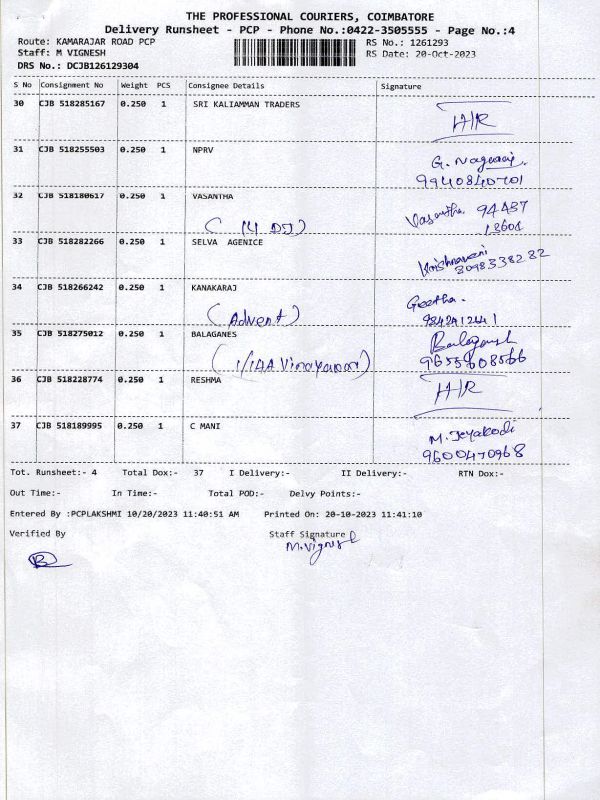 THE PROFESSIONAL COURIERS, COIMBATORE
Delivery Runsheet - PCP - Phone No.:0422-3505555 - Page No.:4
Route: KAMARAJAR ROAD PCP RS No.: 1261293
Staff: M VIGNESH RS Date: 20-Oct-2023
DRS No.: DCJB126129304
S No Consignment No Weight PCS Consignee Details Signature
30 CJB 518285167 0.250 1 SRI KALIAMMAN TRADERS
H/R
31 CJB 518255503 0.250 1 NPRV
G. Nagaraj.
9940840701
32 CJB 518180617 0.250 1 VASANTHA
Vasantha 94437
13601
33 CJB 518282266 0.250 1 SELVA AGENICE
Krishnaveni
3098338282
34 CJB 518266242 0.250 1 KANAKARAJ
Geetha.
(Advent)
35 CJB 518275012 0.250 1 BALAGANES
Balaganesh
9655608566
36 CJB 518228774 0.250 1 RESHMA
H/R
37 CJB 518189995 0.250 1 C MANI
M. Jeyakodi
9600470968
Tot. Runsheet:- 4 Total Dox:- 37 I Delivery:- II Delivery:- RTN Dox:-
Out Time:- In Time:- Total POD:- Delvy Points:-
Entered By :PCPLAKSHMI 10/20/2023 11:40:51 AM Printed On: 20-10-2023 11:41:10
Verified By Staff Signature
M.Vignesh